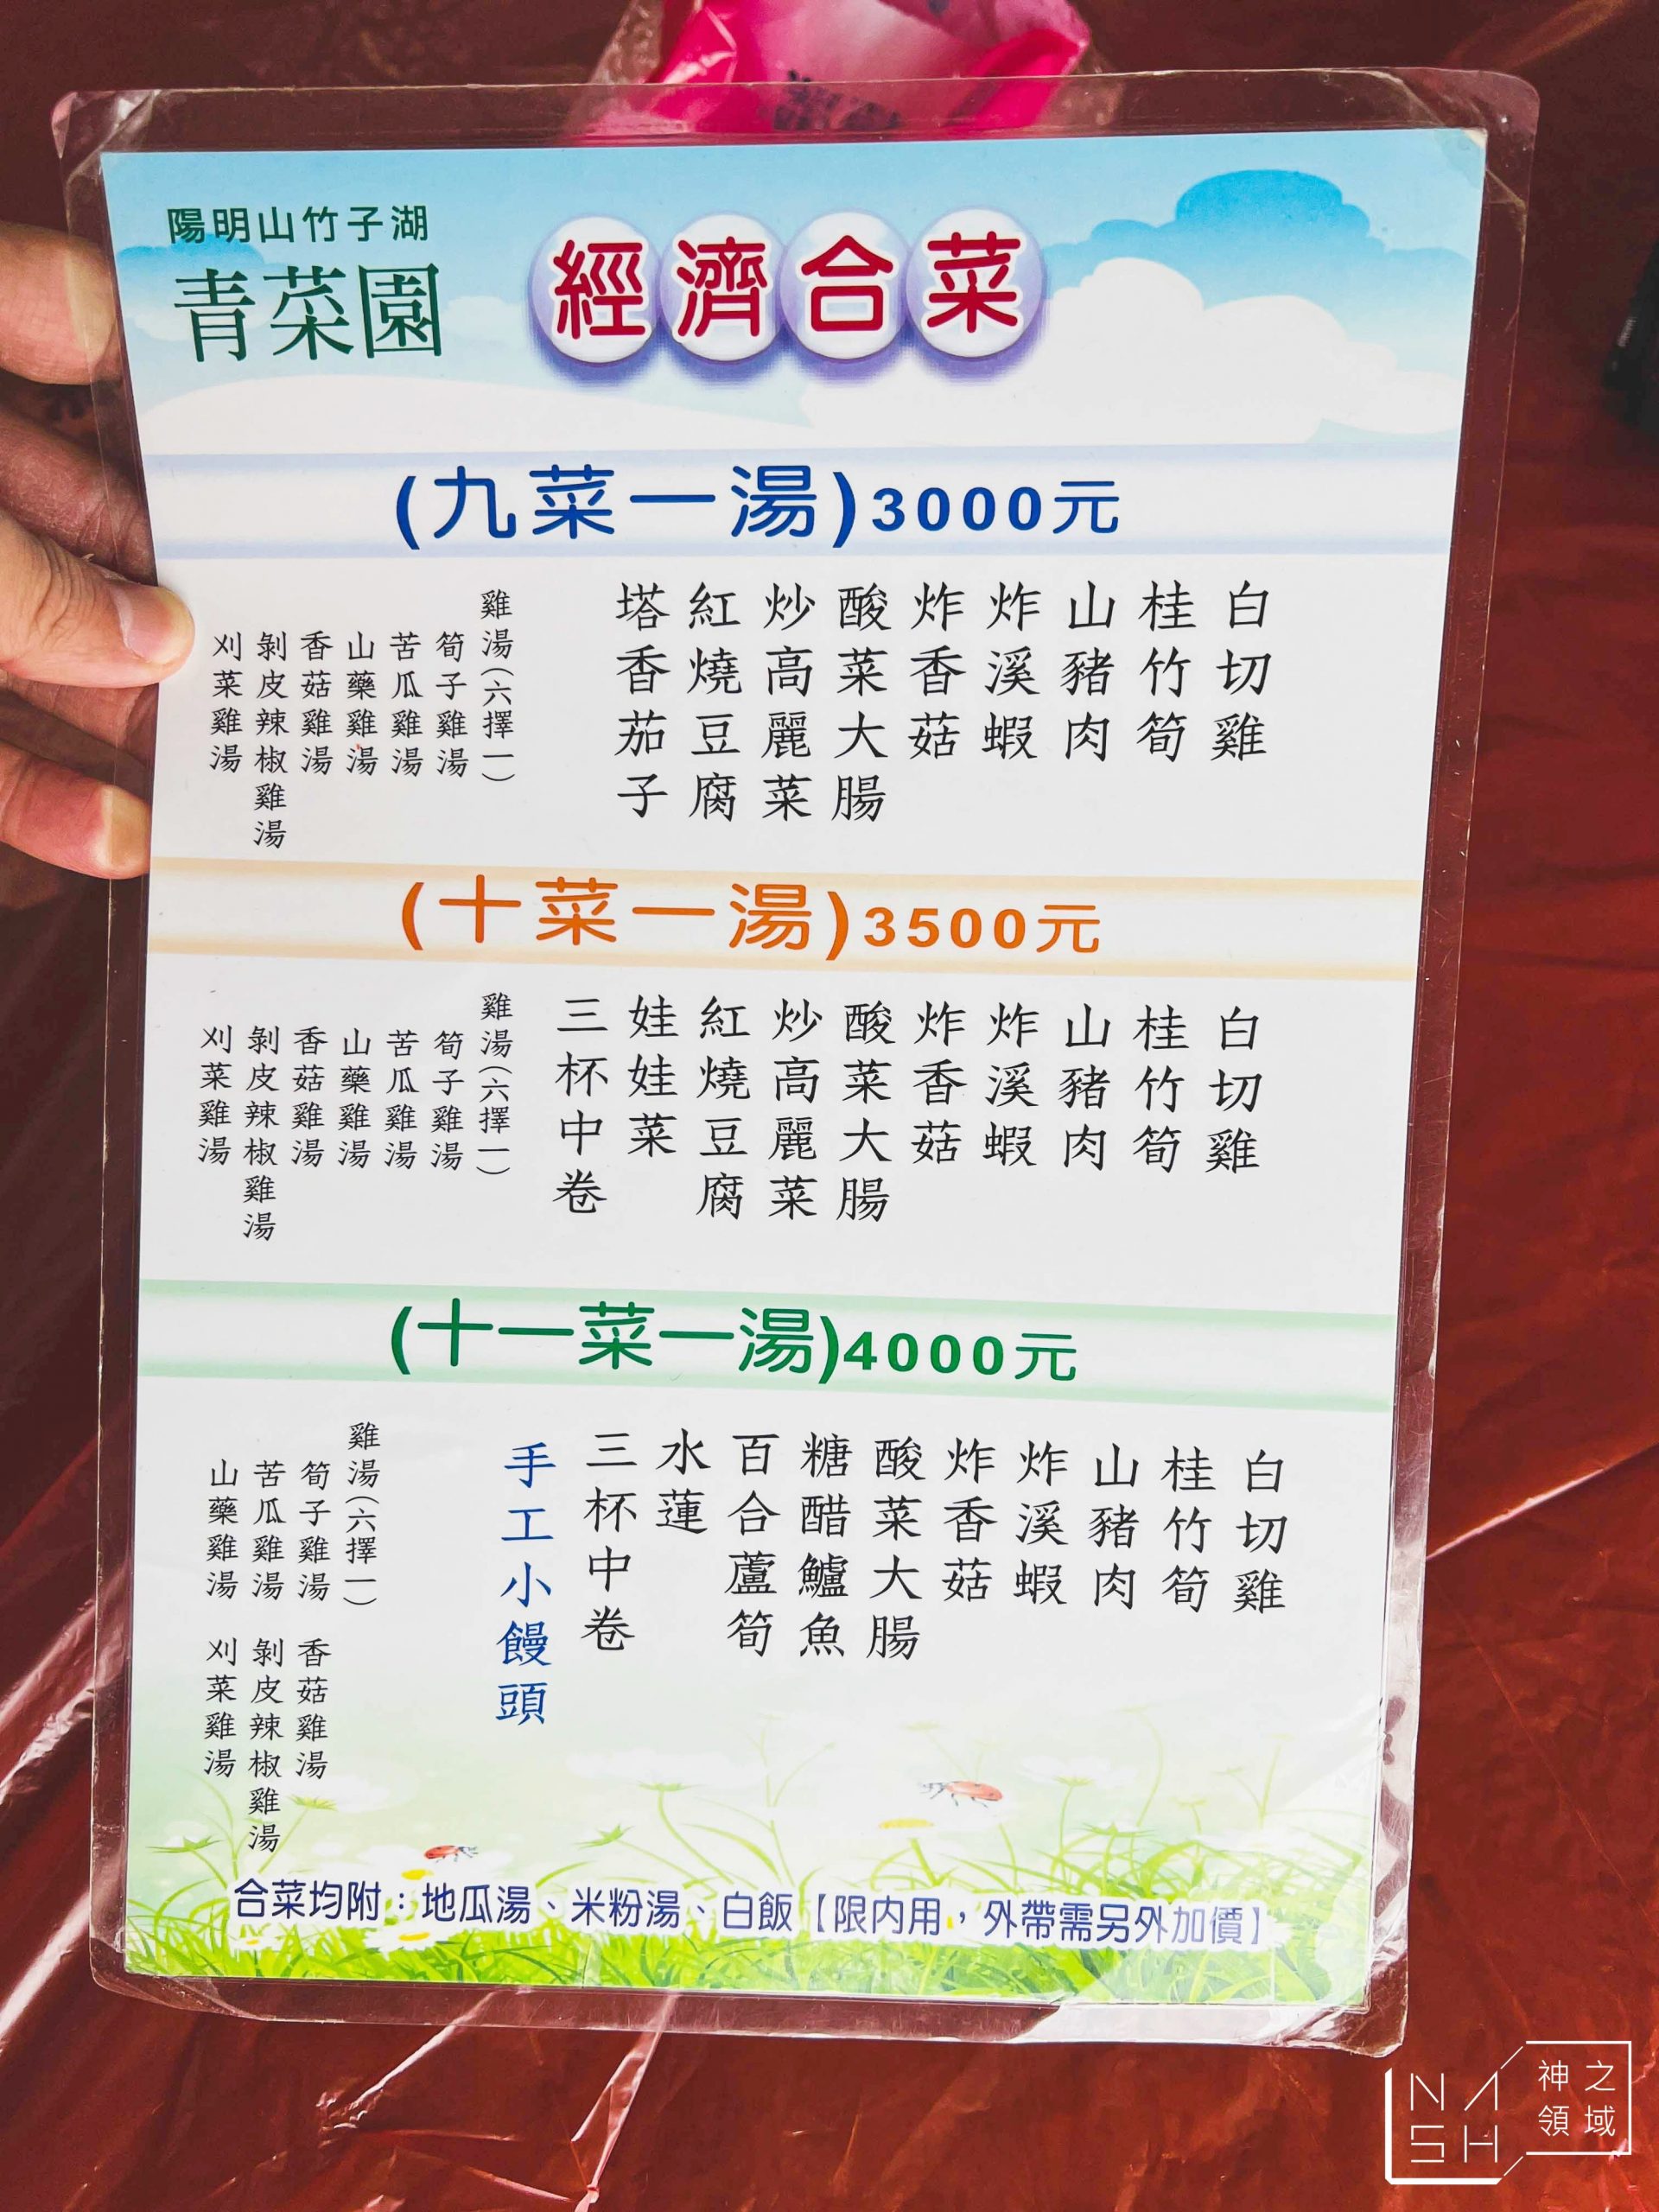 陽明山竹子湖
青菜園
經濟合菜
(九菜一湯)3000元
白切雞
桂竹筍
山豬肉
炸溪蝦
炸香菇
酸菜大腸
炒高麗菜
紅燒豆腐
塔香茄子
雞湯(六擇一)
筍子雞湯
苦瓜雞湯
山藥雞湯
香菇雞湯
剝皮辣椒雞湯
刈菜雞湯
(十菜一湯)3500元
白切雞
桂竹筍
山豬肉
炸溪蝦
炸香菇
酸菜大腸
炒高麗菜
紅燒豆腐
娃娃菜
三杯中卷
雞湯(六擇一)
筍子雞湯
苦瓜雞湯
山藥雞湯
香菇雞湯
剝皮辣椒雞湯
刈菜雞湯
(十一菜一湯)4000元
白切雞
桂竹筍
山豬肉
炸溪蝦
炸香菇
酸菜大腸
糖醋鱸魚
百合蘆筍
水蓮
三杯中卷
手工小饅頭
雞湯(六擇一)
筍子雞湯
苦瓜雞湯
山藥雞湯
香菇雞湯
剝皮辣椒雞湯
刈菜雞湯
合菜均附：地瓜湯、米粉湯、白飯【限內用，外帶需另外加價】
NASH
神之領域